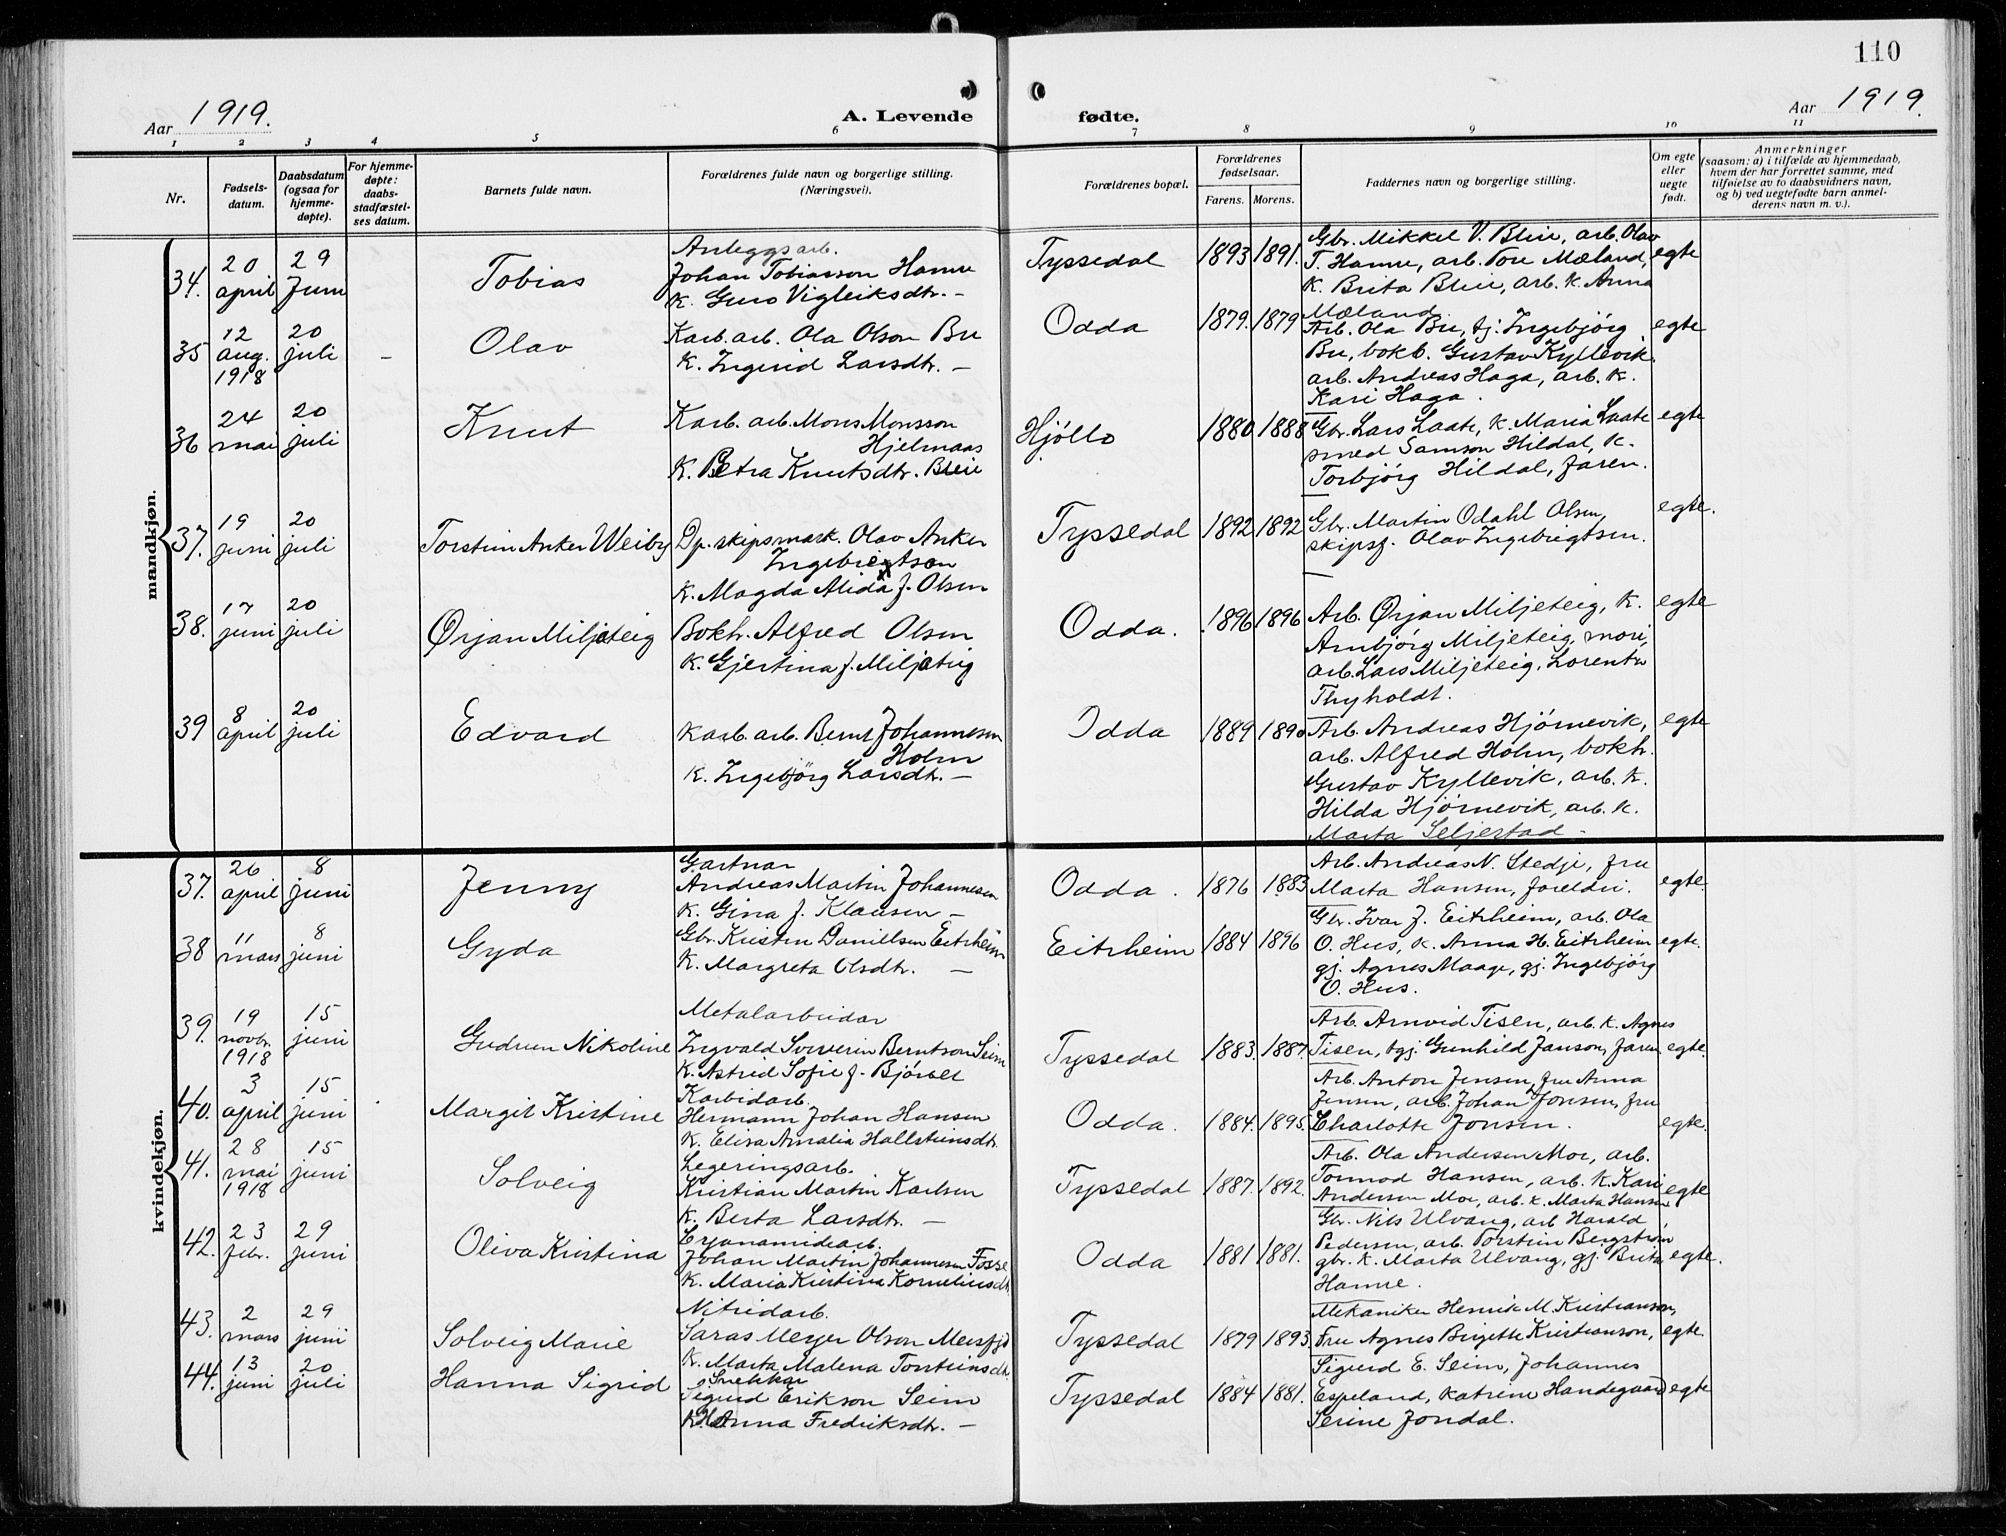 110
Aar 1919. A. Levende fødte. Aar 1919.
1 2 3 4 5 6 7 8 9 10 11
Nr.
Fødsels-
datum.
Daabsdatum
(ogsaa for
hjemme-
døpte).
For hjemme-
døpte:
daabs-
stadfæstel-
ses datum.
Barnets fulde navn.
Forældrenes fulde navn og borgerlige stilling.
(Næringsvei).
Forældrenes bopæl.
Forældrenes
fødselsaar.
Farens. Morens.
Faddernes navn og borgerlige stilling.
Om egte
eller
uegte
født.
Anmerkninger
(saasom: a) i tilfælde av hjemmedaab,
hvem der har forrettet samme, med
tilføielse av to daabsvidners navn,
og b) ved uegtefødte barn anmel-
derens navn m. v.).
mandkjøn.
34.
20
april
29
Juni
Tobias
Anleggsarb.
Johan Tobiasson Hamre
K. Guro Vigleiksdtr. –
Tyssedal
1893 1891.
Gbr. Mikkel V. Bleie, arb. Olav
T. Hamre, arb. Tore Mæland,
K. Brita Bleie, arb. K. Anna
Mæland.
egte
35
12
aug.
1918
20
juli
–
Olav
Karb. arb. Ola Olson Bu
K. Ingerid Larsdtr. –
Odda
1879. 1879
Arb. Ola Bu, tj. Ingebjørg
Bu, bokb. Gustav Kyllevik.
arb. Andreas Haga, arb. K.
Kari Haga.
egte
36
24
mai
20
juli
Knut
Karb. arb. Mons Monsson
Hjelmaas
K. Petra Knutsdtr. Bleie
Hjøllo
1880 1888
Gbr. Lars Laate, K. Maria Laate
smed Samson Hildal, K.
Torbjørg Hildal, faren.
egte
37.
19
juni
20
juli
Torstein Anker Weiby
Dp. skipsmask. Olav Anker
Ingebrigtsen
K. Magda Alida f. Olsen
Tyssedal
1892 1892
Gbr. Martin Odahl Olsen,
skipsf. Olav Ingebrigtsen.
egte.
38.
17
juni
20
juli
Ørjan Miljeteig
Bokh. Alfred Olsen
K. Gjertina f. Miljeteig
Odda.
1896 1896
Arb. Ørjan Miljeteig, K.
Arnbjørg Miljeteig, mori,
arb. Lars Miljeteig, Lorentse
Thyholdt.
egte
39
8
april
20
juli
Edvard
Karb. arb. Bernt Johannesen
Holm
K. Ingebjörg Larsdtr. –
Odda
1889 1890
Arb. Andreas Hjørnevik,
arb. Alfred Holm, bokh.
Gustav Kyllevik, arb. K.
Hilda Hjørnevik, arb. K.
Marta Seljestad –
egte
kvindekjøn.
37.
26
april
8
juni
Jenny
Gartnar
Andreas Martin Johannesen
K. Gina f. Klausen –
Odda.
1876 1883
Arb. Andreas N. Stedje, fru
Marta Hansen, foreldri.
egte.
38
11
mars
8
juni
Gyda
Gbr. Kristen Danielsen Eitrheim
K. Margreta Olsdtr. –
Eitrheim
1884 1896
Gbr. Ivar J. Eitrheim, arb. Ola
O. Hus, K. Anna H. Eitrheim
gj. Agnes Maage, gj. Ingebjörg
O. Hus.
egte.
39.
19
novbr.
1918
15
juni
Gudrun Nikoline
Metalarbeidar
Ingvald Severin Berntson Seim
K. Astrid Sofie f. Bjørset
Tyssedal
1883. 1887.
Arb. Arnvid Tisen, arb. K. Agnes
Tisen, tgj. Gunhild Janson, faren
egte.
40.
3
april
15
juni
Margit Kristine
Karbidarb.
Hermann Johan Hansen
K. Elisa Amalia Hallsteinsdtr.
Odda.
1884. 1895.
Arb. Anton Jensen, fru Anna
Jensen, arb. Johan Jonsen, fru
Charlotte Jonsen.
egte.
41.
28
mai
1918
15
juni
Solveig
Legeringsarb.
Kristian Martin Karlsen
K. Berta Larsdtr. –
Tyssedal
1887. 1892.
Arb. Ola Andersen Moe, arb.
Tormod Hansen, arb. K. Kari
Andersen Moe, arb. K. Marta Hansen
egte
42.
23
febr.
29
juni
Oliva Kristina
Cyanamidearb.
Johan Martin Johannesen Fosse
K. Maria Kristina Korneliusdtr.
Odda
1881 1881.
Gbr. Nils Ulvang, arb. Harald
Pedersen, arb. Torstein Bergstrøm
gbr. K. Marta Ulvang, gj. Brita
Hamre.
egte.
43.
2
mars
29
juni
Solveig Marie
Nitridarb.
Saras Meyer Olson Meisfjd
K. Marta Malena Torsteinsdtr.
Tyssedal
1879 1893.
Mekaniker Henrik M. Kristianson,
Fru Agnes Birgette Kristianson,
egte.
44.
13
juni
20
juli
Hanna Sigrid
Snekkar
Sigurd Erikson Seim
K. Hanna Fredriksdtr. –
Tyssedal
1884 1881.
Sigurd E. Seim, Johannes
Espeland, Katrine Handegaard
Serine Jondal.
egte